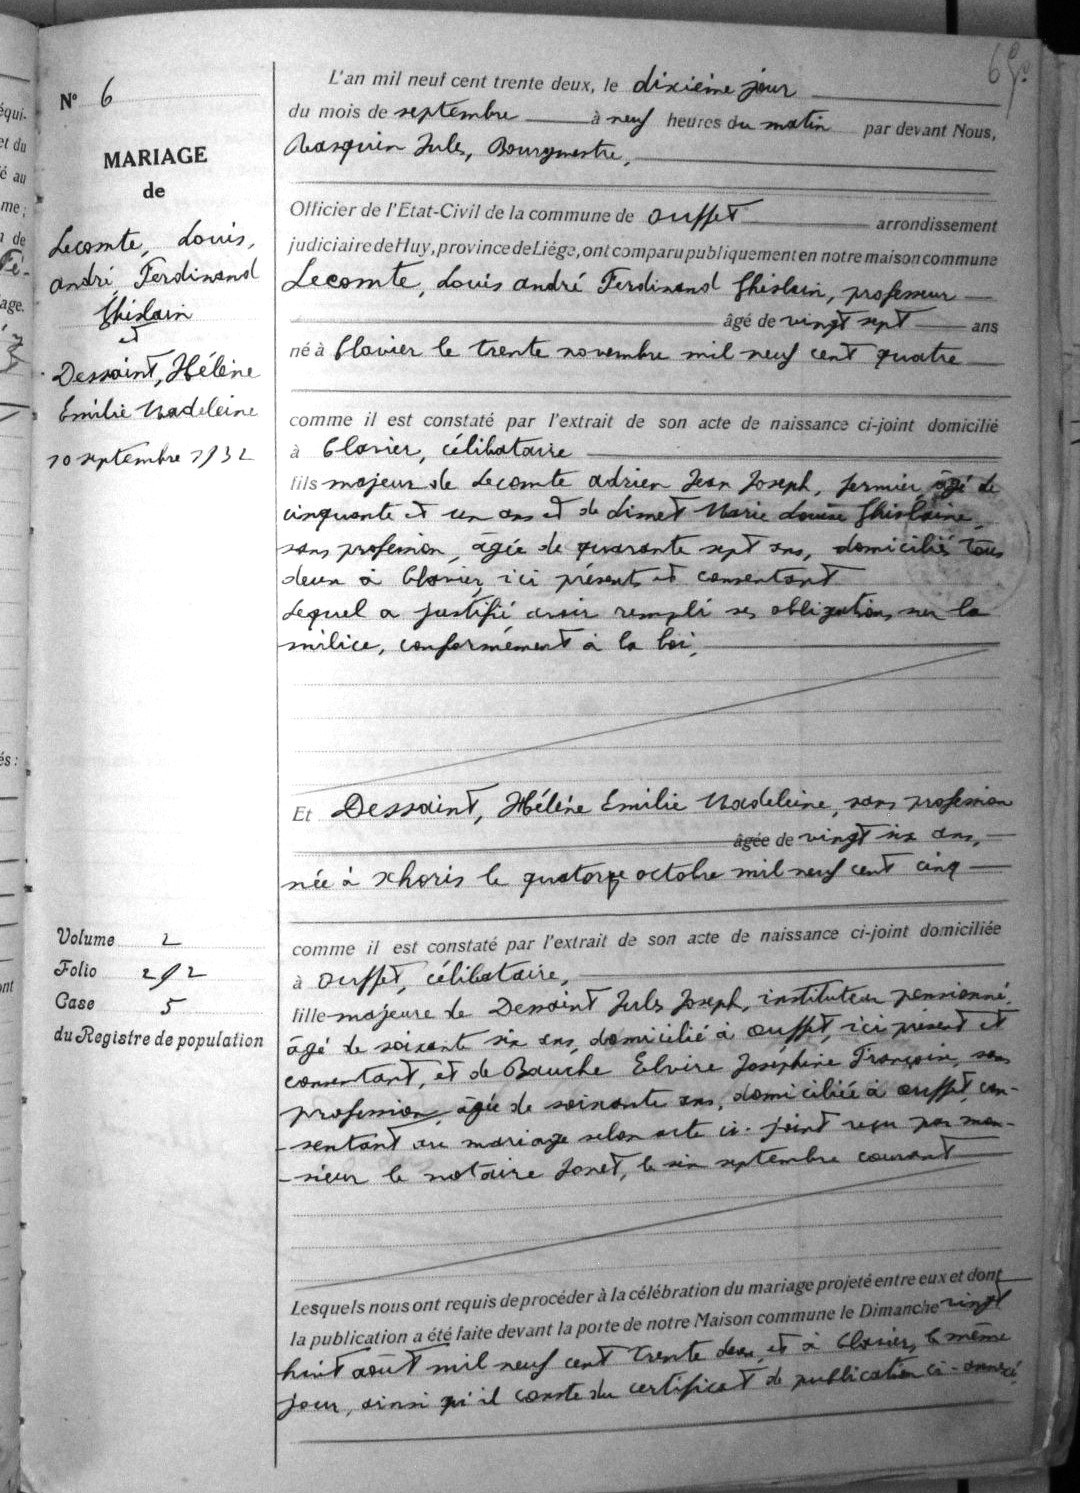 N° 6
MARIAGE
de
Lecomte, Louis,
andré Ferdinand
Ghislain
et
Dessaint, Hélène
Emilie Madeleine
10 septembre 1932
Volume 2
Folio 292
Case 5
du Registre de population
L'an mil neuf cent trente deux, le dixième jour
du mois de septembre à neuf heures du matin par devant Nous,
Rasquin Jules, Bourgmestre,
Officier de l'Etat-Civil de la commune de Ouffet arrondissement
judiciaire de Huy, province de Liége, ont comparu publiquement en notre maison commune
Lecomte, Louis andré Ferdinand Ghislain, professeur
âgé de vingt sept ans
né à Clavier le trente novembre mil neuf cent quatre
comme il est constaté par l'extrait de son acte de naissance ci-joint domicilié
à Clavier, célibataire
fils majeur de Lecomte adrien Jean Joseph, fermier, âgé de
cinquante et un ans et de Limet Marie Louise Ghislaine,
sans profession, âgée de quarante sept ans, domiciliés tous
deux à Clavier, ici présents et consentant
Lequel a justifié avoir rempli ses obligations sur la
milice, conformément à la loi,
Et Dessaint, Hélène Emilie Madeleine, sans profession
âgée de vingt six ans,
née à Xhoris le quatorze octobre mil neuf cent cinq
comme il est constaté par l'extrait de son acte de naissance ci-joint domiciliée
à Ouffet, célibataire,
fille majeure de Dessaint Jules Joseph, instituteur pensionné,
âgé de soixante six ans, domicilié à Ouffet, ici présent et
consentant, et de Bauche Elvire Joséphine Françoise, sans
profession, âgée de soixante ans, domiciliée à Ouffet, con-
-sentant au mariage selon acte ci-joint reçu par mon-
-sieur le notaire Jonet, le six septembre courant
Lesquels nous ont requis de procéder à la célébration du mariage projeté entre eux et dont
la publication a été faite devant la porte de notre Maison commune le Dimanche vingt
huit août mil neuf cent trente deux, et à Clavier, le même
jour, ainsi qu'il conste du certificat de publication ci-annexé,